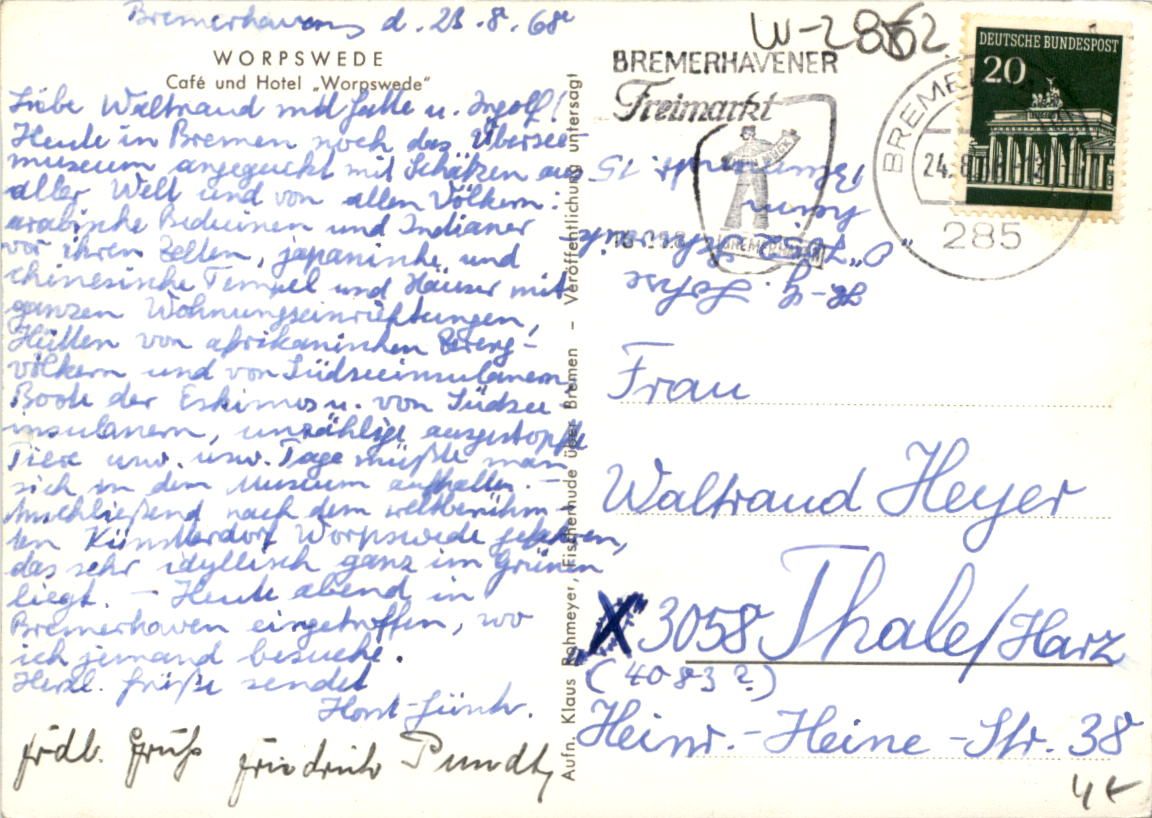 Bremerhaven d. 23.8.68
WORPSWEDE
Café und Hotel „Worpswede“
Liebe Waltraud mit Gatte u. Ingolf!
Heute in Bremen noch das Übersee-
museum angeguckt mit Schätzen aus
aller Welt und von allen Völkern:
arabische Beduinen und Indianer
vor ihren Zelten, japanische und
chinesische Tempel und Häuser mit
ganzen Wohnungseinrichtungen,
Hütten von afrikanischen Berg-
völkern und von Südseeinsulanern
Boote der Eskimos u. von Südsee-
insulanern, unzählige ausgestopfte
Tiere usw. usw. Tage müßte man
sich in dem Museum aufhalten. —
Anschließend nach dem weltberühm-
ten Künstlerdorf Worpswede gefahren,
das sehr idyllisch ganz im Grünen
liegt. — Heute abend in
Bremerhaven eingetroffen, wo
ich jemand besuche.
Herzl. Grüße sendet
Horst-Günter.
Frdl. Gruß Friedrich Pundt
Aufn. Klaus Rohmeyer, Fischerhude über Bremen – Veröffentlichung untersagt
W-2862
BREMERHAVENER
Freimarkt
BREMERHAVEN
DEUTSCHE BUNDESPOST
20
BREME
24.8.
285
H.-G.
15
Frau
Waltraud Heyer
X 3058 Thale/Harz
(4083?)
Heinr.-Heine-Str. 38
4